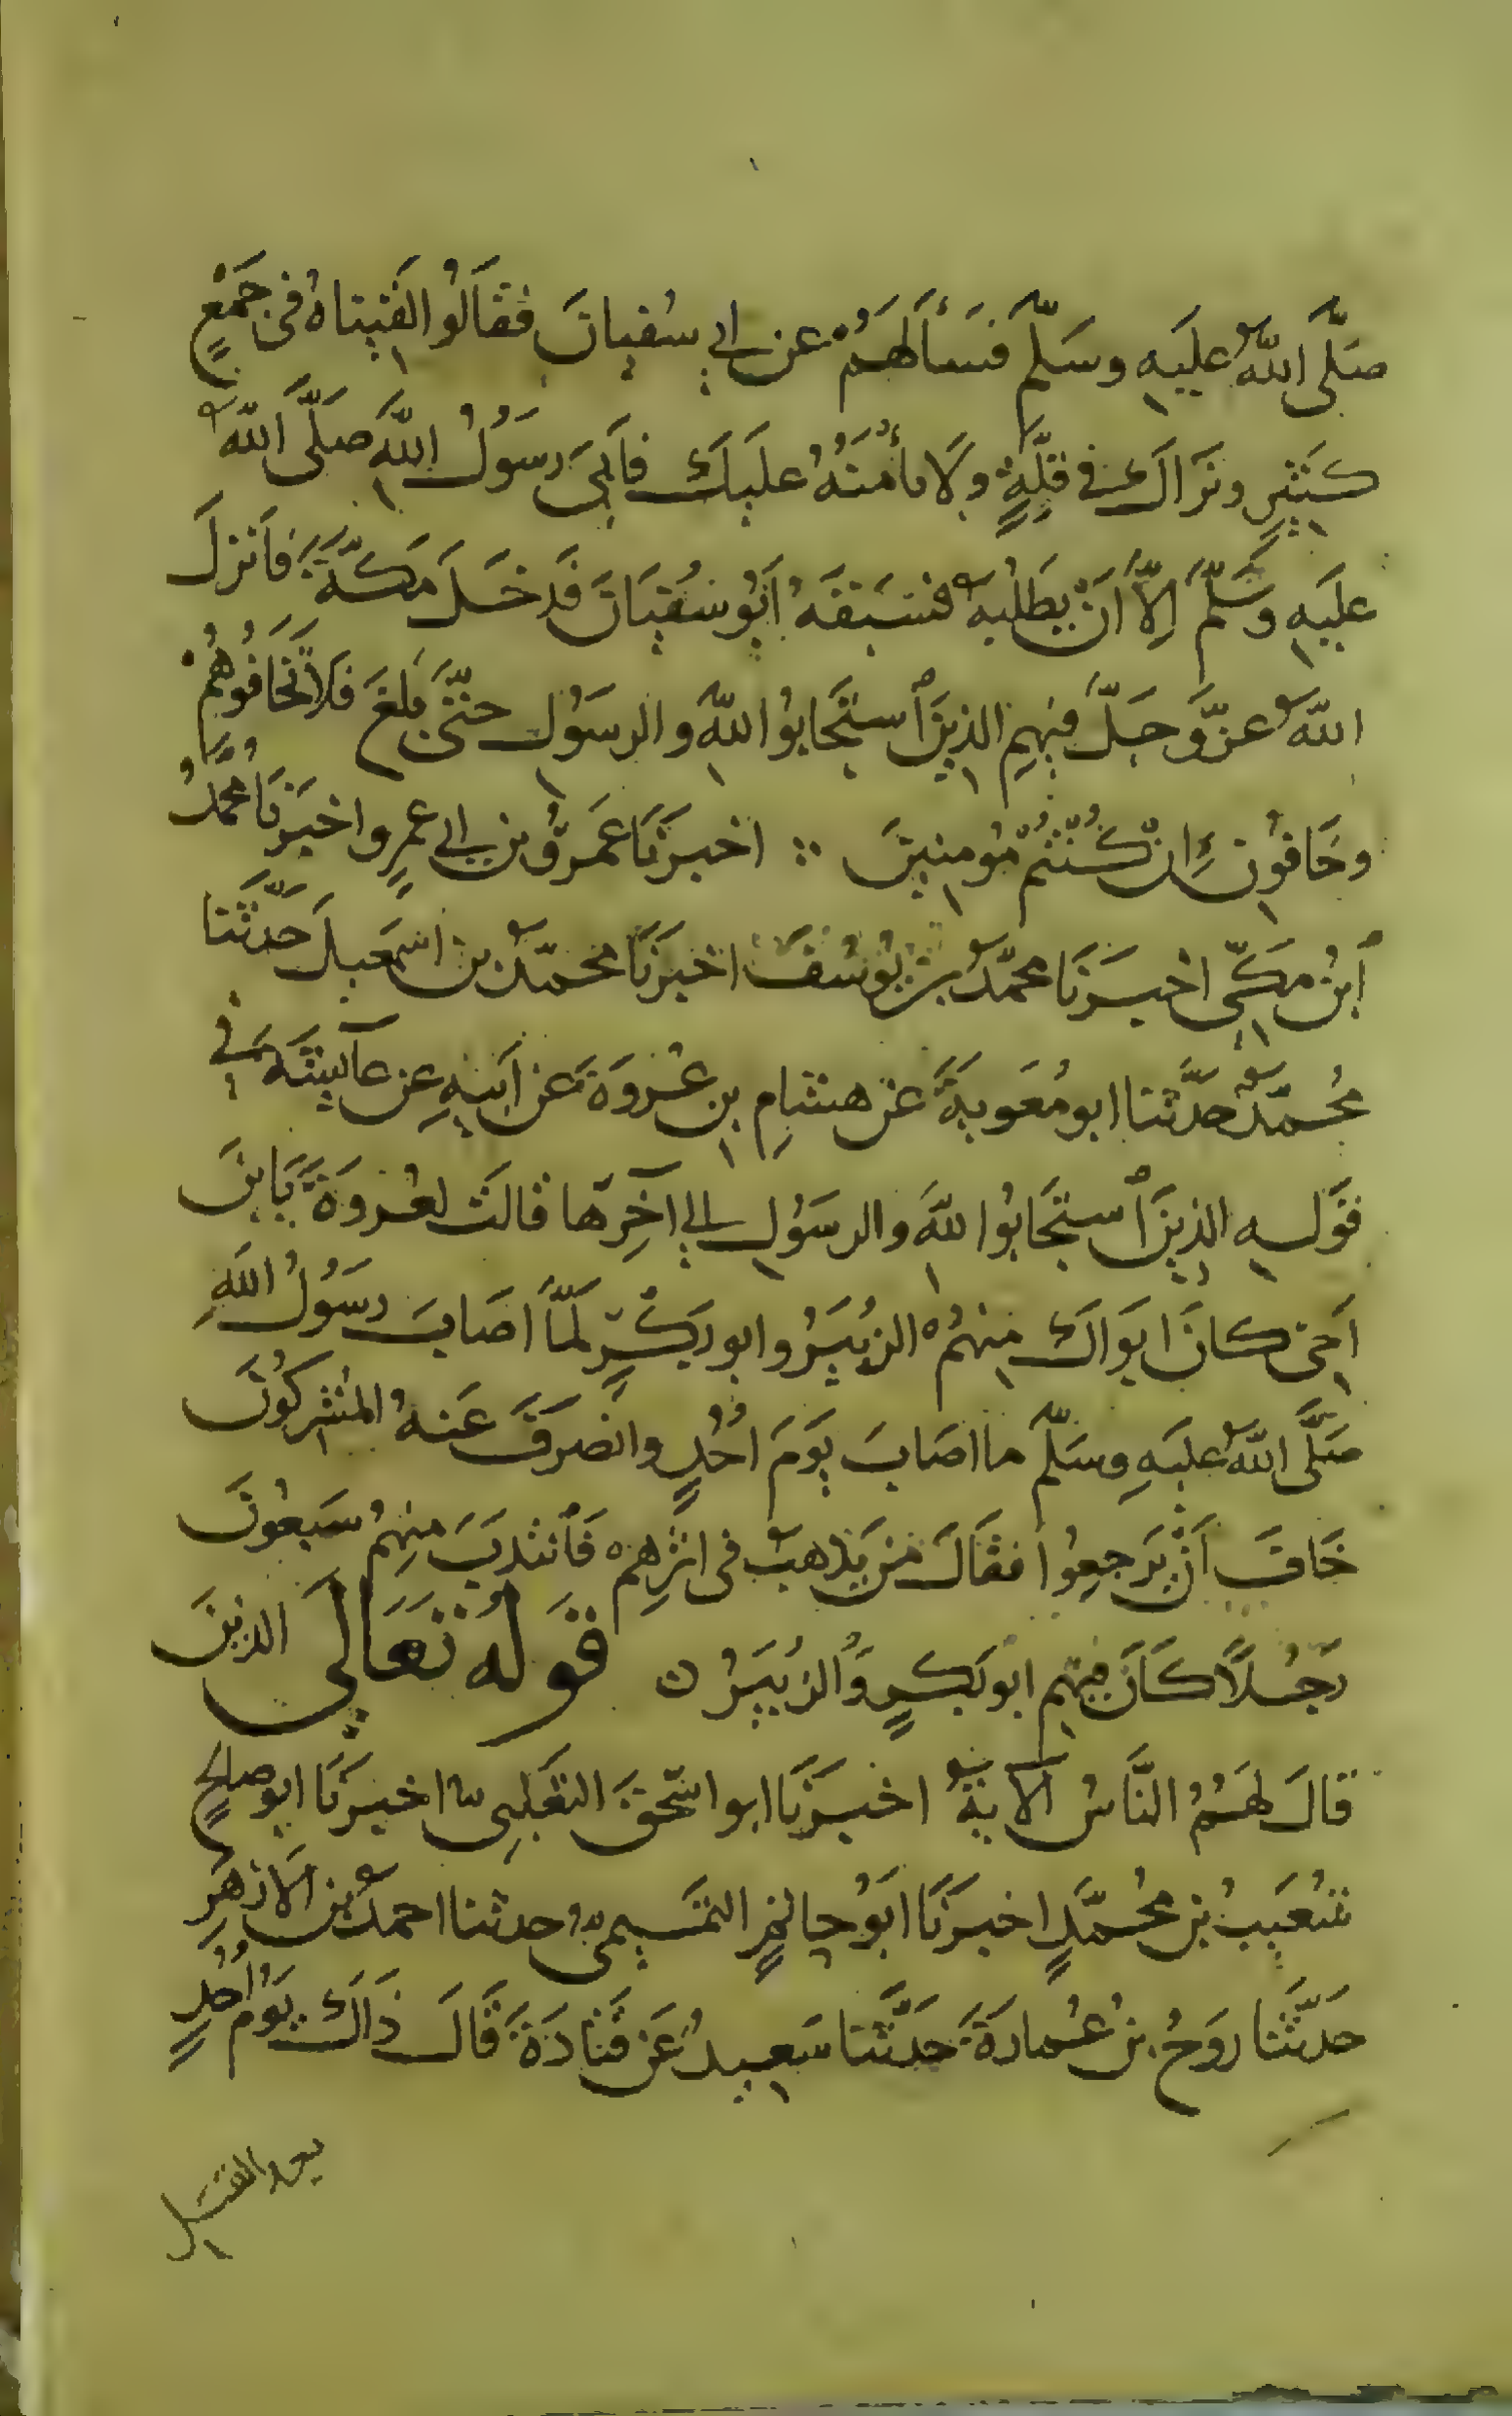 صَلَّى اللهُ عليَهِ وسَلَّمَ فسَأَلهَمُ عن ابي سُفيانَ فقَالُوا الَقيناهُ في جَمْعٍ
كَثيرٍ ونرَاكَ في قلَّةٍ ولاَ نأمنَهُ عليَكَ فاَبىَ رسَوُلُ اللهَِ صَلَّى اللهُ
عليَهِ وسَلّمَ اِلاَّ اَنْ يطَلُبهُ فسَبقَهُ اَبَوُ سُفيَانَ فَدخلَ مَكَّةَ فاَنزلَ
اللهُ عزَّ وَجلَّ فيهِم الذينَ استَجَابوُا للهِ والرسَوُل حتَّى بلَغَ فلاَ تخَافُوهُمْ
وخَافوُن اِنْ كُنْتُمْ مُومنينَ ∴ اخبرَنَا عَمروُ بن ابي عمرٍو اخبَرنَا مُحمَّدُ
ابْنُ مكِّيّ اخبرَنَا محمّدُ بنُ يوُسُفَ اخبرَنَا محمّدُ بن اسمَعيلَ حَدّثَنا
مُحمّدُ حدَّثنا ابو مُعَويةَ عَن هشامِ بن عُروَةَ عَن ابَيهِ عن عآئشَةَ في
قوَلهِ الذينَ استجَابوُا للهَِ والرسَوُلِ الي آخِرهَا قالَت لعُروَةَ يَا بنَ
اُختي كانَ ابوَاكَ منهمُ الزبُيَرُ وابو بكَرٍ لَمَّا اصَابَ رسَوُلُ اللهَِ
صَلَّى اللهُ عليَهِ وسَلّمَ ما اصَابَ يوَمَ اُحُدٍ وانصَرفَ عَنهُ المُشركُونَ
خَافَ اَنْ يرَجعِوُا فقَالَ مَن يذَهبُ في اثرِهم فَانتدَبَ منِهمُ سَبعُونَ
رَجُلاً كَانَ فيهم ابو بكَرٍ وَالزبُيَرُ ن قوَلهُ تعَالَى الذينَ
قالَ لهَمُ النَّاسُ الآيةُ اخبرَنَا ابو اسحَقَ الثعَلَبِي اخبرَنَا ابو صالحٍ
شُعَيبُ بن مُحمَّدٍ اخبرَنَا ابوَ حاتمٍ التمَيمي حدثنا احمدُ بن الاَزهَرِ
حَدثَّنا رَوحُ بنُ عُبادَةَ حَدَّثنَا سَعيدُ عَن قتَادَةَ قَالَ ذَاكَ يوَم اُحُدٍ
بعد القتل